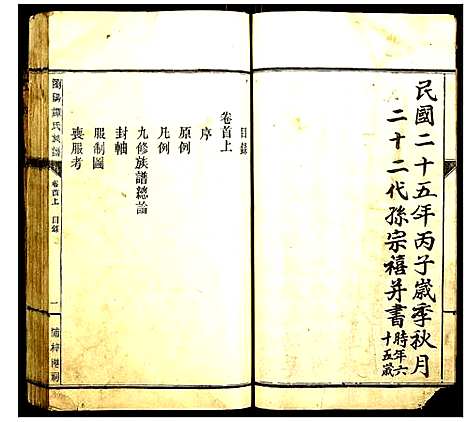 民國二十五年丙子歲季秋月
二十二代孫宗禧并書
時年六
十五歲
目錄
卷首上
序
原例
凡例
九修族譜總論
封軸
服制圖
喪服考
瀏陽譚氏族譜
卷首上
目錄
一